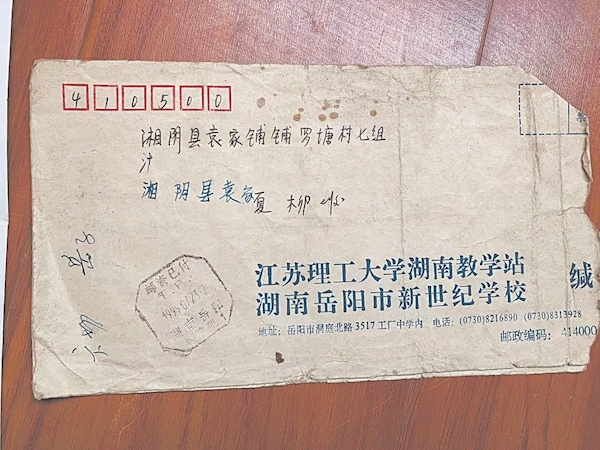 410500
湘阴县袁家铺铺罗塘村七组
湘阴县袁家
夏 柳 收
邮资已付
江苏理工大学湖南教学站
湖南岳阳市新世纪学校
缄
地址：岳阳市洞庭北路 3517 工厂中学内 电话：(0730)8216890 (0730)8313928
邮政编码：414000